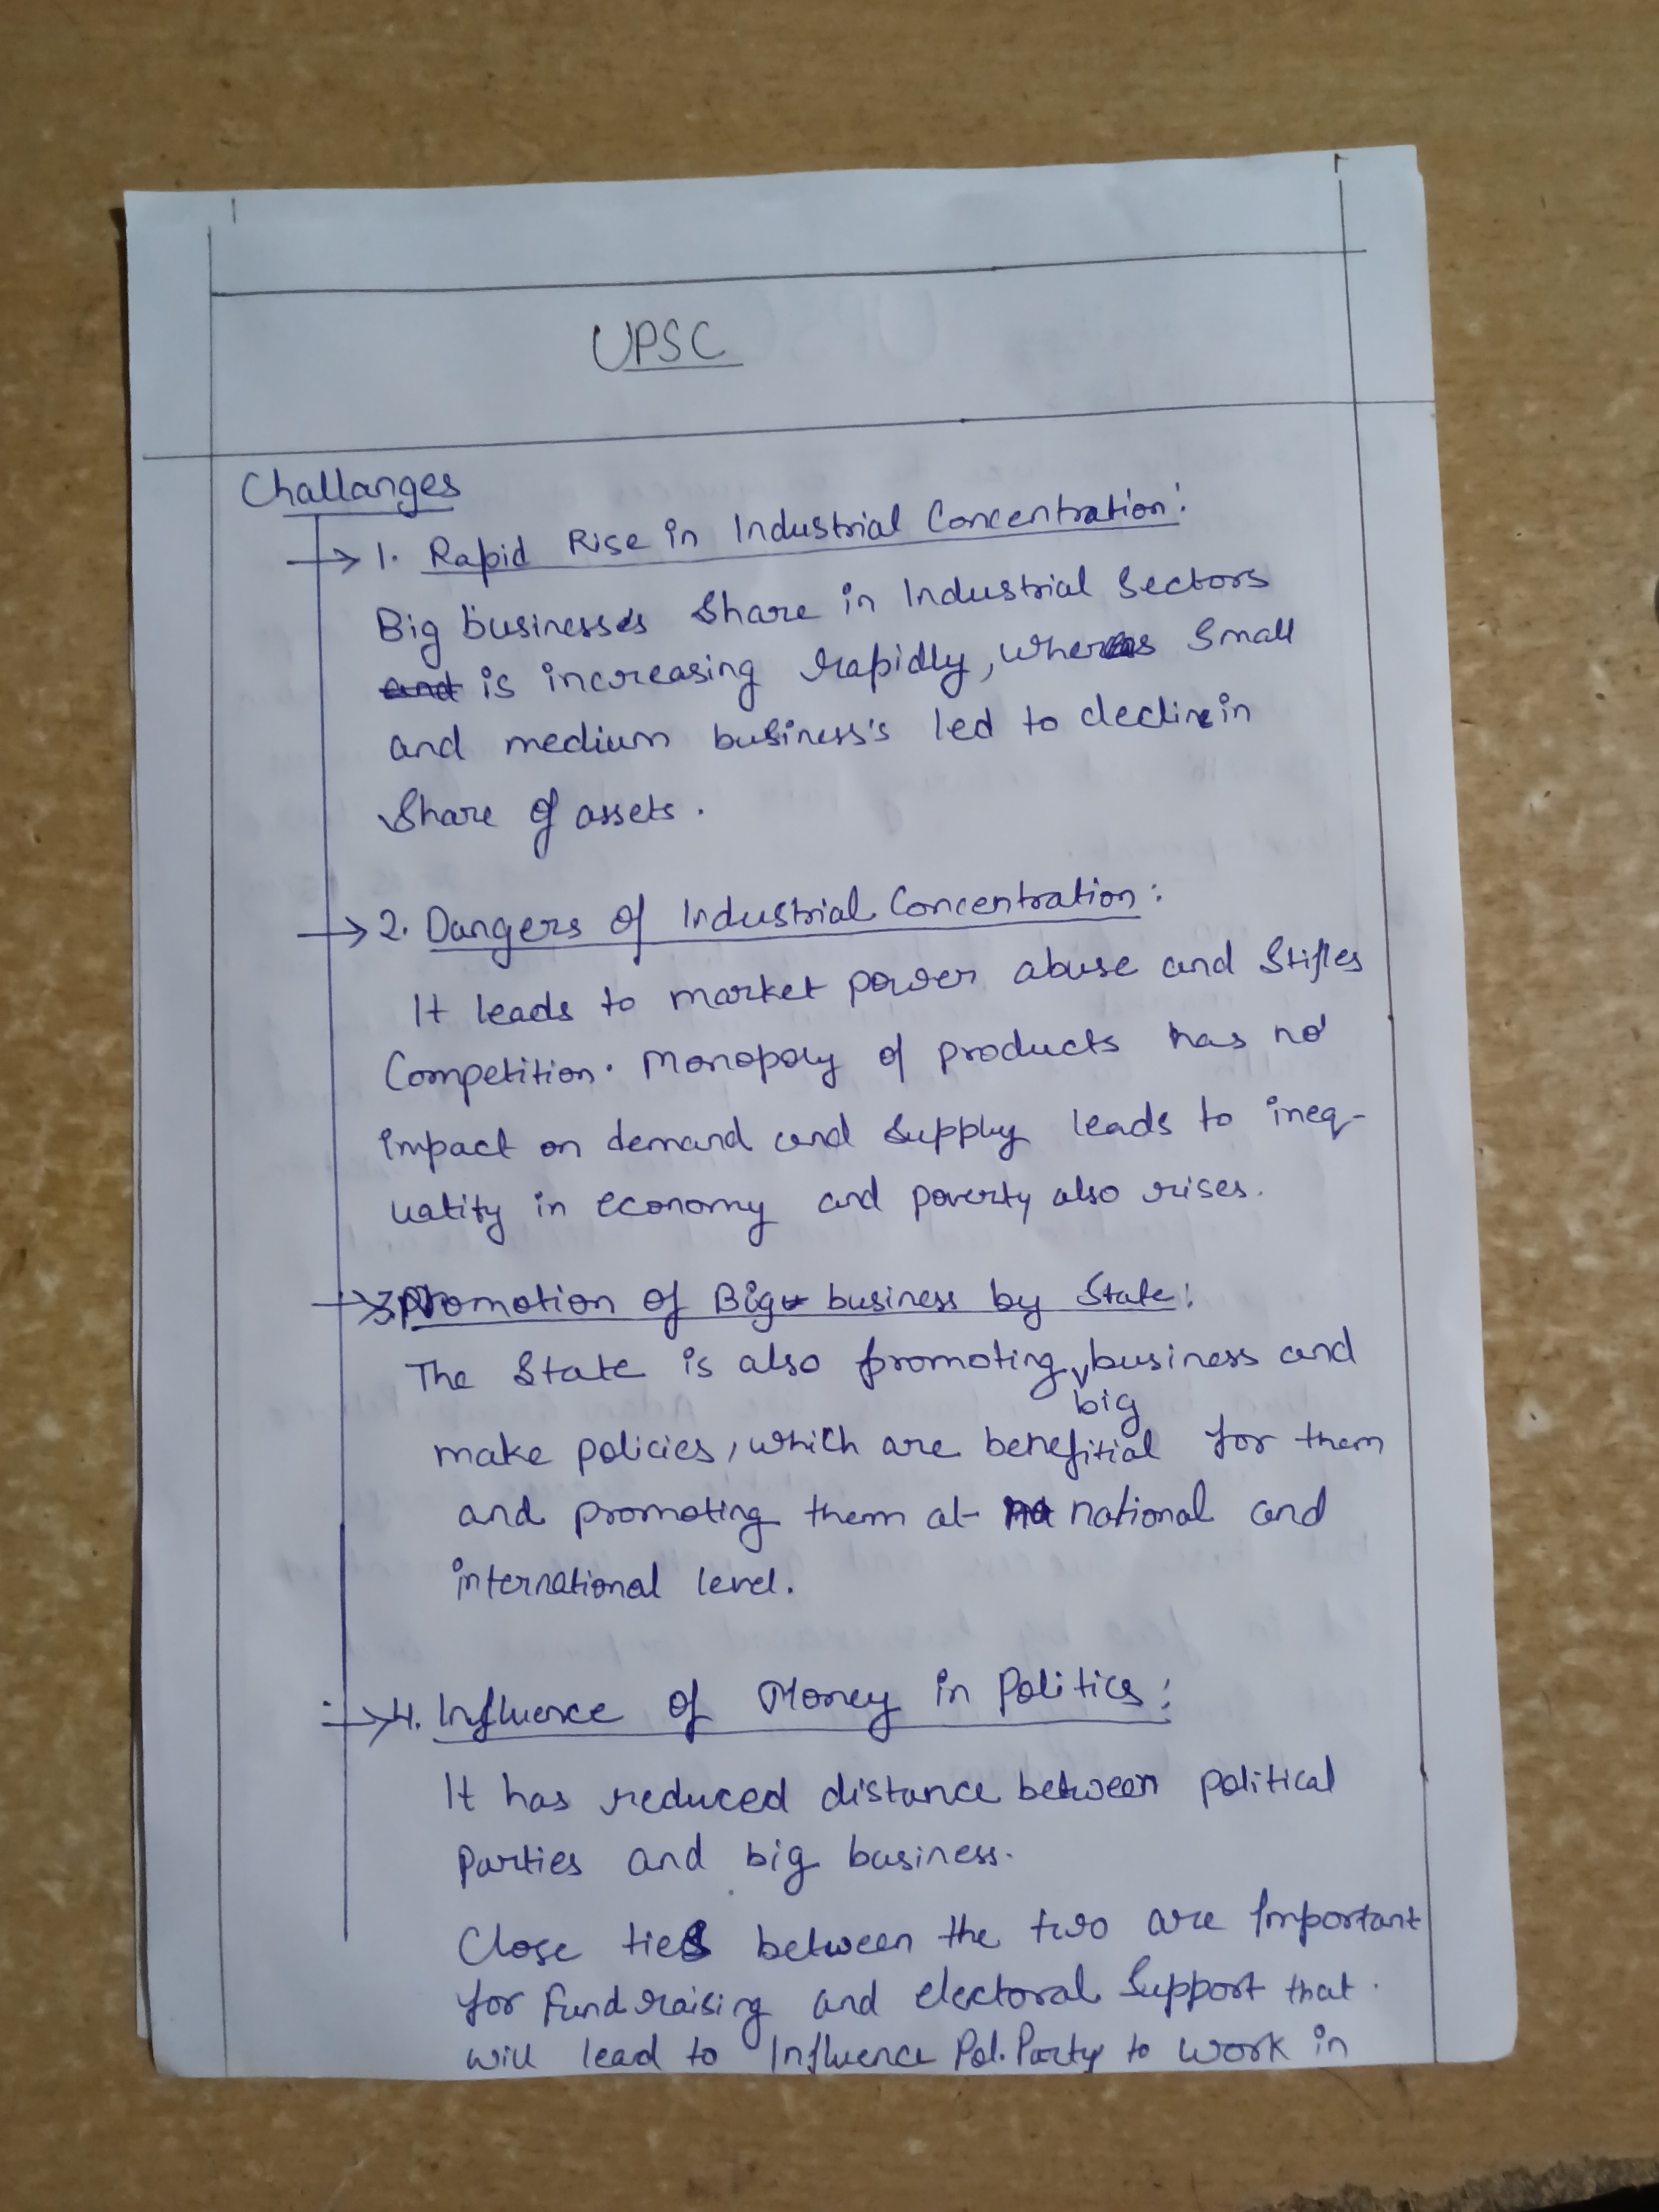 UPSC
Challanges
1. Rapid Rise in Industrial Concentration:
Big businesses share in Industrial Sectors
and is increasing rapidly, wheras Small
and medium business's led to decline in
Share of assets.
2. Dangers of Industrial Concentration:
It leads to market power abuse and Stifles
Competition. Monopoly of products has no
impact on demand and supply leads to ineq-
uality in economy and poverty also rises.
3. Promotion of Big business by State:
The State is also promoting business and
big
make policies, which are benefitial for them
and promoting them at national and
international level.
4. Influence of Money in Politics:
It has reduced distance between political
Parties and big business.
Close ties between the two are Important
for fund raising and electoral Support that
will lead to Influence Pol. Party to work in